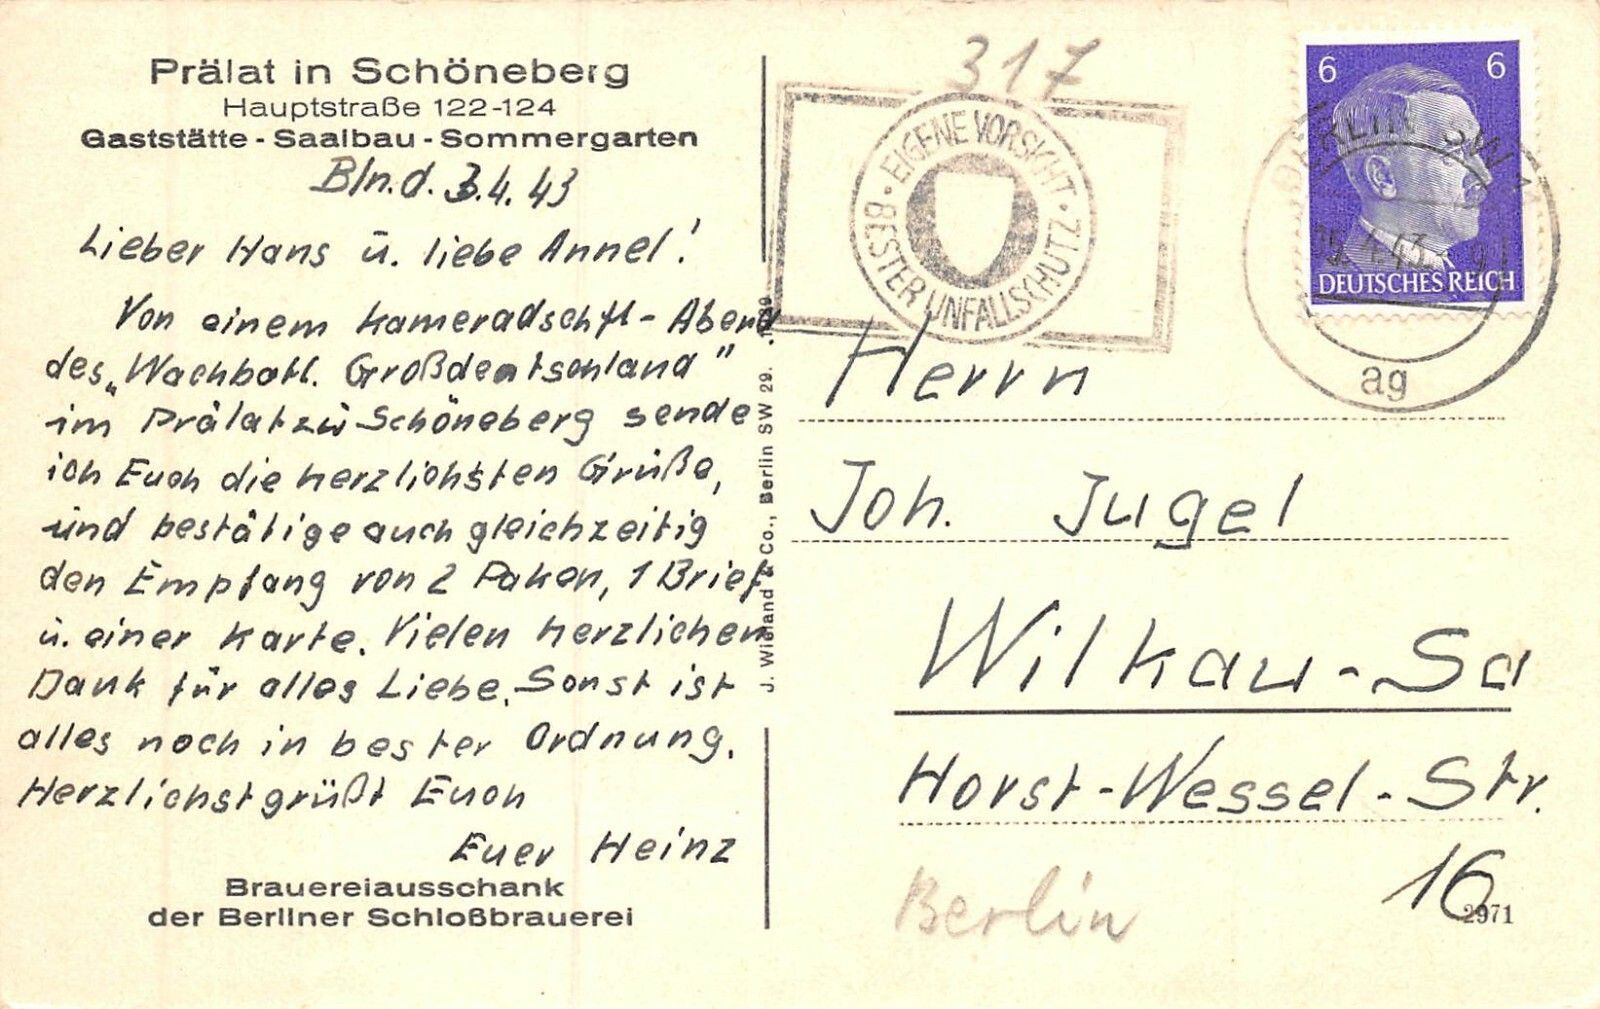 Prälat in Schöneberg
Hauptstraße 122-124
Gaststätte - Saalbau - Sommergarten
Bln. d. 3.4.43
Lieber Hans u. liebe Annel!
Von einem Kameradschftl-Abend
des „Wachbatl. Großdeutschland"
im Prälat zu Schöneberg sende
ich Euch die herzlichsten Grüße,
und bestätige auch gleichzeitig
den Empfang von 2 Paken, 1 Brief
u. einer Karte. Vielen herzlichen
Dank für alles Liebe. Sonst ist
alles noch in bester Ordnung.
Herzlichst grüßt Euch
Euer Heinz
Brauereiausschank
der Berliner Schloßbrauerei
J. Wieland & Co., Berlin SW 29.
317
EIGENE VORSICHT
BESTER UNFALLSCHUTZ
6 6
DEUTSCHES REICH
BERLIN SW 11
ag
Herrn
Joh. Jugel
Wilkau-Sa
Horst-Wessel-Str.
16
Berlin
2971